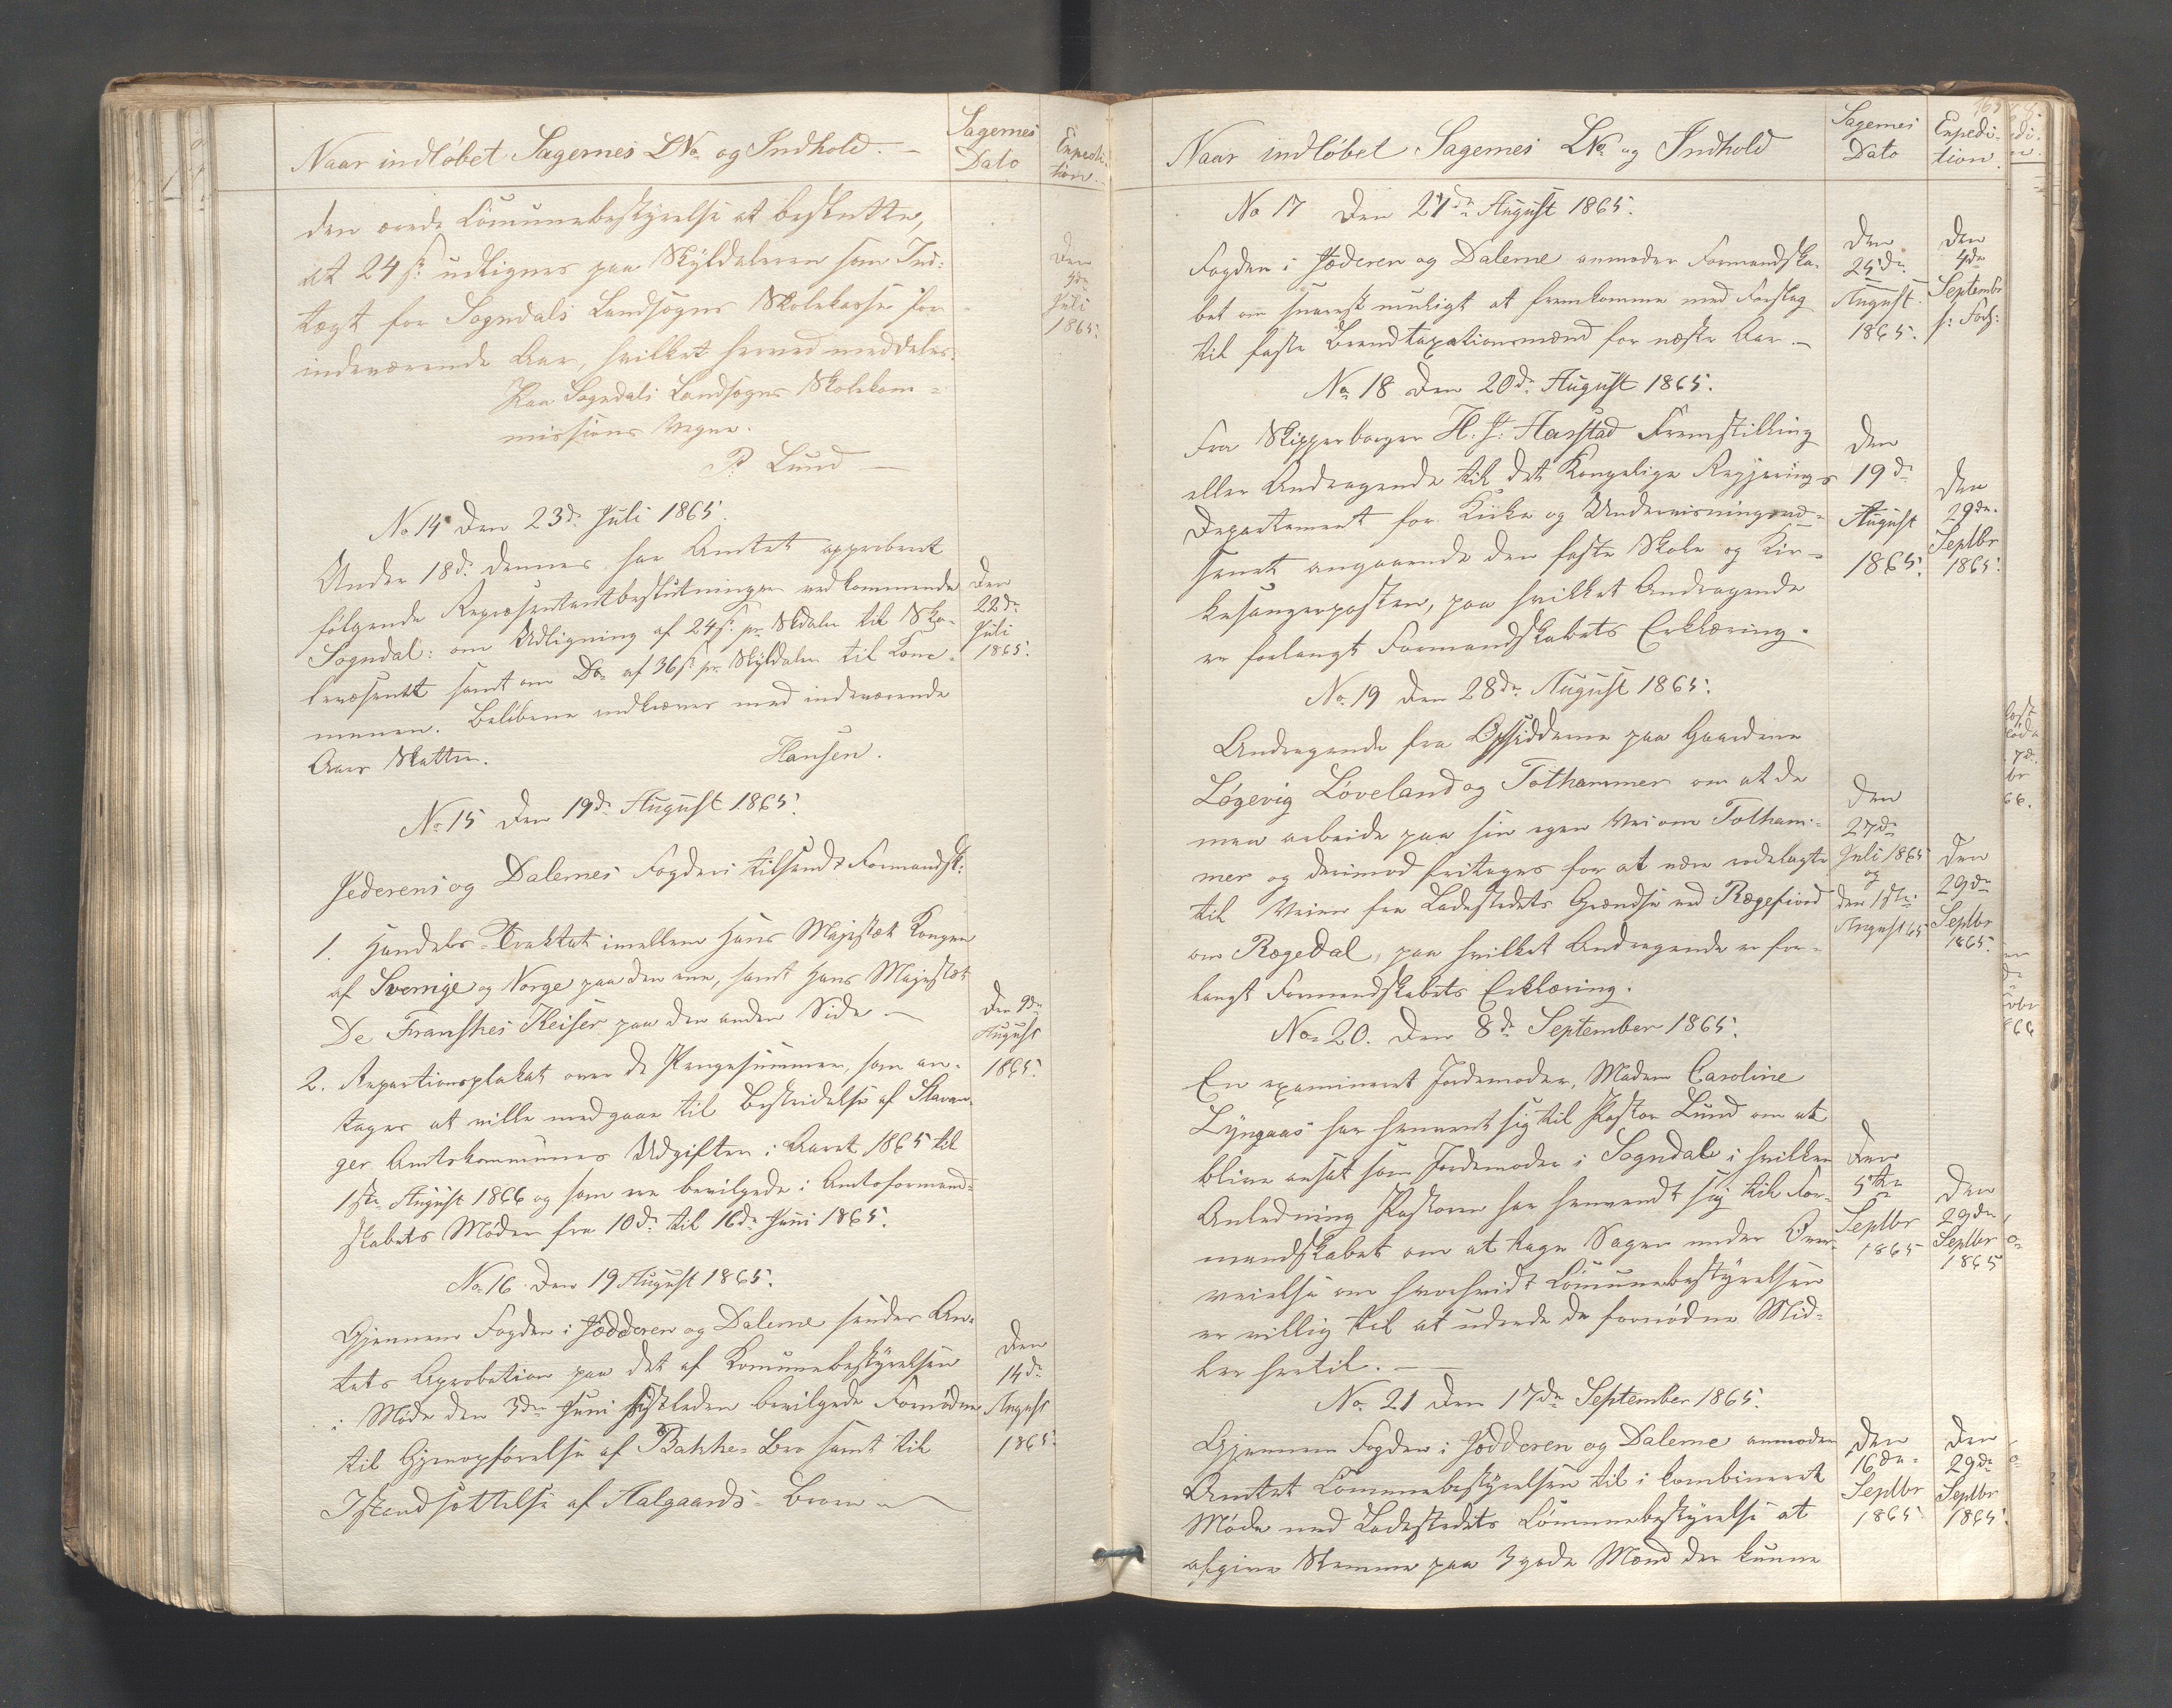 Naar indløbet Sagernes LNo og Indhold. —
Sagernes Dato
Expedi-
tion.
den ærede Communebestyrelse at beslutte,
at 24 s: udlignes paa Skyldaleren som Ind-
tægt for Sogndals Landsogns Skolekasse for
indeværende Aar, hvilket herved meddeles.
Paa Sogndals Landsogns Skolekom-
missions Vegne.
P. Lund —
Den
4de
Juli
1865.
No 14 Den 23de Juli 1865.
Under 18de dennes har Amtet approberet
følgende Repræsentantbeslutninger vedkommende
Sogndal: om Udligning af 24 s: pr Skdaler til Sko-
levæsenet samt om Do af 36 s pr Skyldaler til Kom-
munen. Beløbene indkræves med indeværende
Aars Skatter.
Hansen.
Den
22de
Juli
1865.
No 15 Den 19de August 1865.
Jederens og Dalernes Fogderi tilsendt Formandsk:
1. Handels-Traktat imellem Hans Majestæt Kongen
af Sverrige og Norge paa den ene, samt Hans Majestæt
De Franskes Keiser paa den anden Side —
2. Repartionsplakat over de Pengesummer, som an-
tages at ville medgaae til Bestridelse af Stavan-
ger Amtskommunes Udgifter i Aaret 1865 til
1ste August 1866 og som ere bevilgede i Amtsformand-
skabets Møder fra 10de til 16de Juni 1865.
Den 9de
August
1865.
No 16 Den 19 August 1865.
Gjennem Fogden i Jædderen og Dalerne sendes Am-
tets Aprobation paa det af Komunebestyrelsen
i Møde den 3die Juni sidstleden bevilgede Fornødne
til Gjenopførelse af Bakke-Bro samt til
Istandsættelse af Aalgaards-Broen —
Den
14de
August
1865.
Naar indløbet Sagernes LNo og Indhold
Sagernes
Dato
Expedi-
tion.
No 17 Den 27de August 1865.
Fogden i Jæderen og Dalerne anmoder Formandska-
bet om snarest muligt at fremkomme med Forslag
til faste Brandtaxationsmænd for næste Aar. —
Den
25de
August
1865.
Den
4de
Septembr
No 18 Den 20de August 1865.
Fra Skipperborger H. J. Aarstad Fremstilling
eller Andragende til det Kongelige Regjerings
Departement for Kirke og Undervisningsvæ-
senet angaaende den faste Skole og Kir-
kesangerposten, paa hvilket Andragende
er forlangt Formandskabets Erklæring.
Den
19de
August
1865.
Den
29de
Septbr
1865.
No 19 Den 28de August 1865.
Andragende fra Opsidderne paa Gaardene
Løgevig Løveland og Tothammer om at de
maa arbeide paa sin egen Vei om Totham-
mer og derimod fritages for at være rodelagte
til Veien fra Ladestedets Grændse ved Rægefjord
om Rægedal, paa hvilket Andragende er for-
langt Formandskabets Erklæring.
Den
27de
Juli 1865
og
den 1ste
August 65
Den
29de
Septbr
1865.
No 20. Den 8de September 1865.
En examineret Jordemoder, Madam Caroline
Lyngaas har henvendt sig til Pastor Lund om at
blive ansat som Jordemoder i Sogndal i hvilken
Anledning Pastoren har henvendt sig til For-
mandskabet om at tage Sagen under Over-
veielse om hvorvidt Communebestyrelsen
er villig til at udrede de fornødne Mid-
ler hertil. —
Den
5te
Septbr
1865
Den
29de
Septbr
1865
No 21 Den 17de September 1865.
Gjennem Fogden i Jædderen og Dalerne anmoder
Amtet Communebestyrelsen til i kombineret
Møde med Ladestedets Communebestyrelse at
afgive Stemme paa 3 gode Mænd der kunne
Den
16de
Septbr
1865
Den
29de
Septbr
1865.